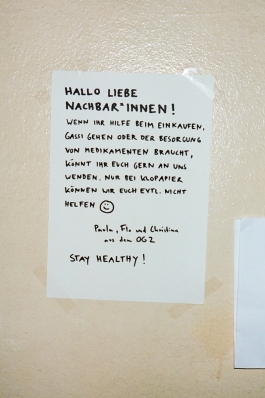 HALLO LIEBE
NACHBAR*INNEN!
WENN IHR HILFE BEIM EINKAUFEN,
GASSI GEHEN ODER DER BESORGUNG
VON MEDIKAMENTEN BRAUCHT,
KÖNNT IHR EUCH GERN AN UNS
WENDEN. NUR BEI KLOPAPIER
KÖNNEN WIR EUCH EVTL. NICHT
HELFEN ☺
Paula, Flo und Christina
aus dem OG 2
STAY HEALTHY!